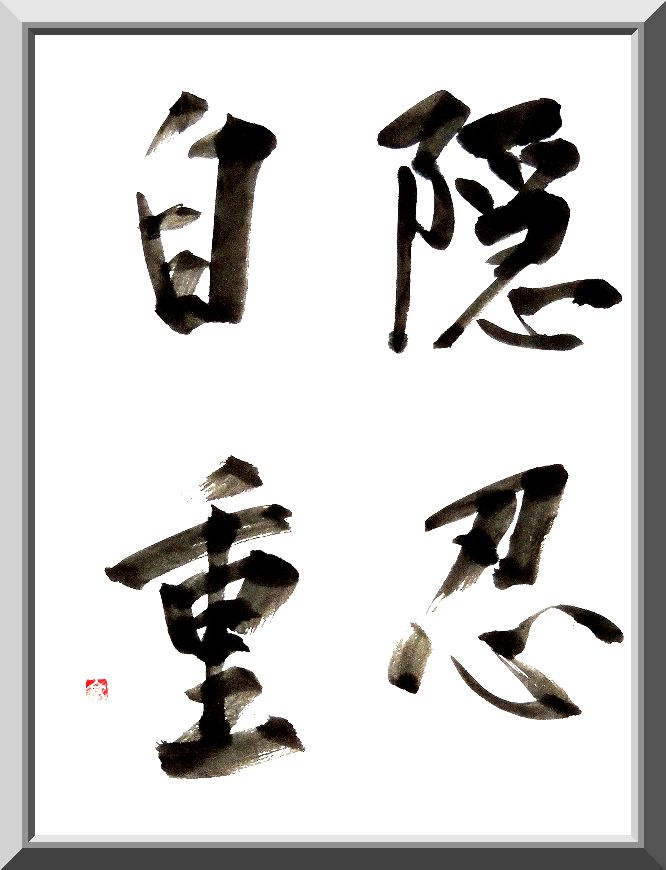 隠忍
自重